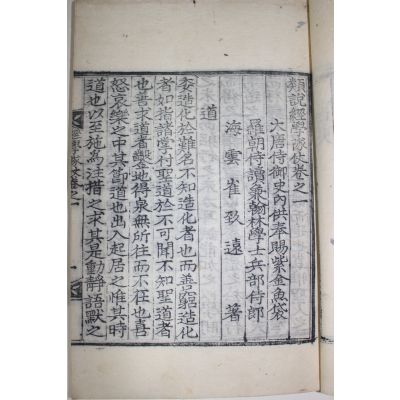 類說經學隊仗卷之一
大唐侍御史內供奉賜紫金魚袋
羅朝侍讀兼翰林學士兵部侍郎
海雲崔致遠著
道
委造化於難名不知造化者也而善窮造化
者如指諸掌付聖道於不可聞不知聖道者
也善求道者鑿地得泉無所往而不在也喜
怒哀樂之中其當道也出入起居之惟其時
道也以至施為注措之求其是動靜語默之
經學隊仗卷之一